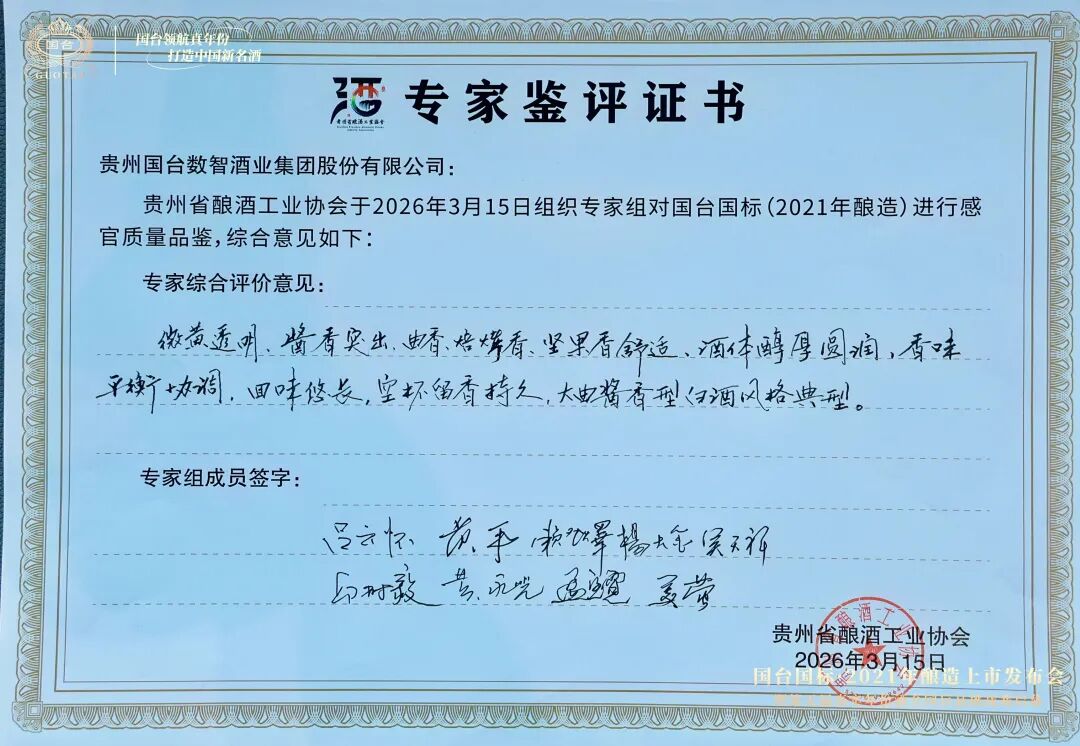 国台
GUOTAI
国台领航真年份
打造中国新名酒
酒
贵州省酿酒工业协会
专家鉴评证书
贵州国台数智酒业集团股份有限公司：
贵州省酿酒工业协会于2026年3月15日组织专家组对国台国标（2021年酿造）进行感
官质量品鉴，综合意见如下：
专家综合评价意见：
微黄透明、酱香突出、曲香、焙烤香、坚果香舒适、酒体醇厚圆润、香味
平衡协调，回味悠长，空杯留香持久，大曲酱香型白酒风格典型。
专家组成员签字：
吕云怀 黄平
贵州省酿酒工业协会
2026年3月15日
国台国标·2021年酿造上市发布会